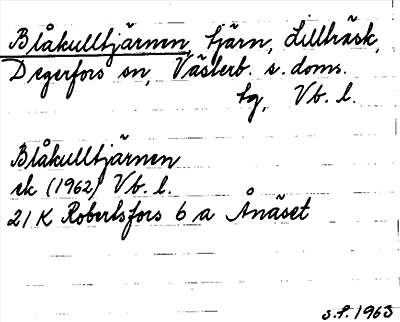 Blåkulltjärnen, tjärn, Lillträsk,
Degerfors sn, Västerb. s. doms.
tg, Vb. l.
Blåkulltjärnen
ek (1962) Vb. l.
21 K Robertsfors 6 a Ånäset
s.f. 1963